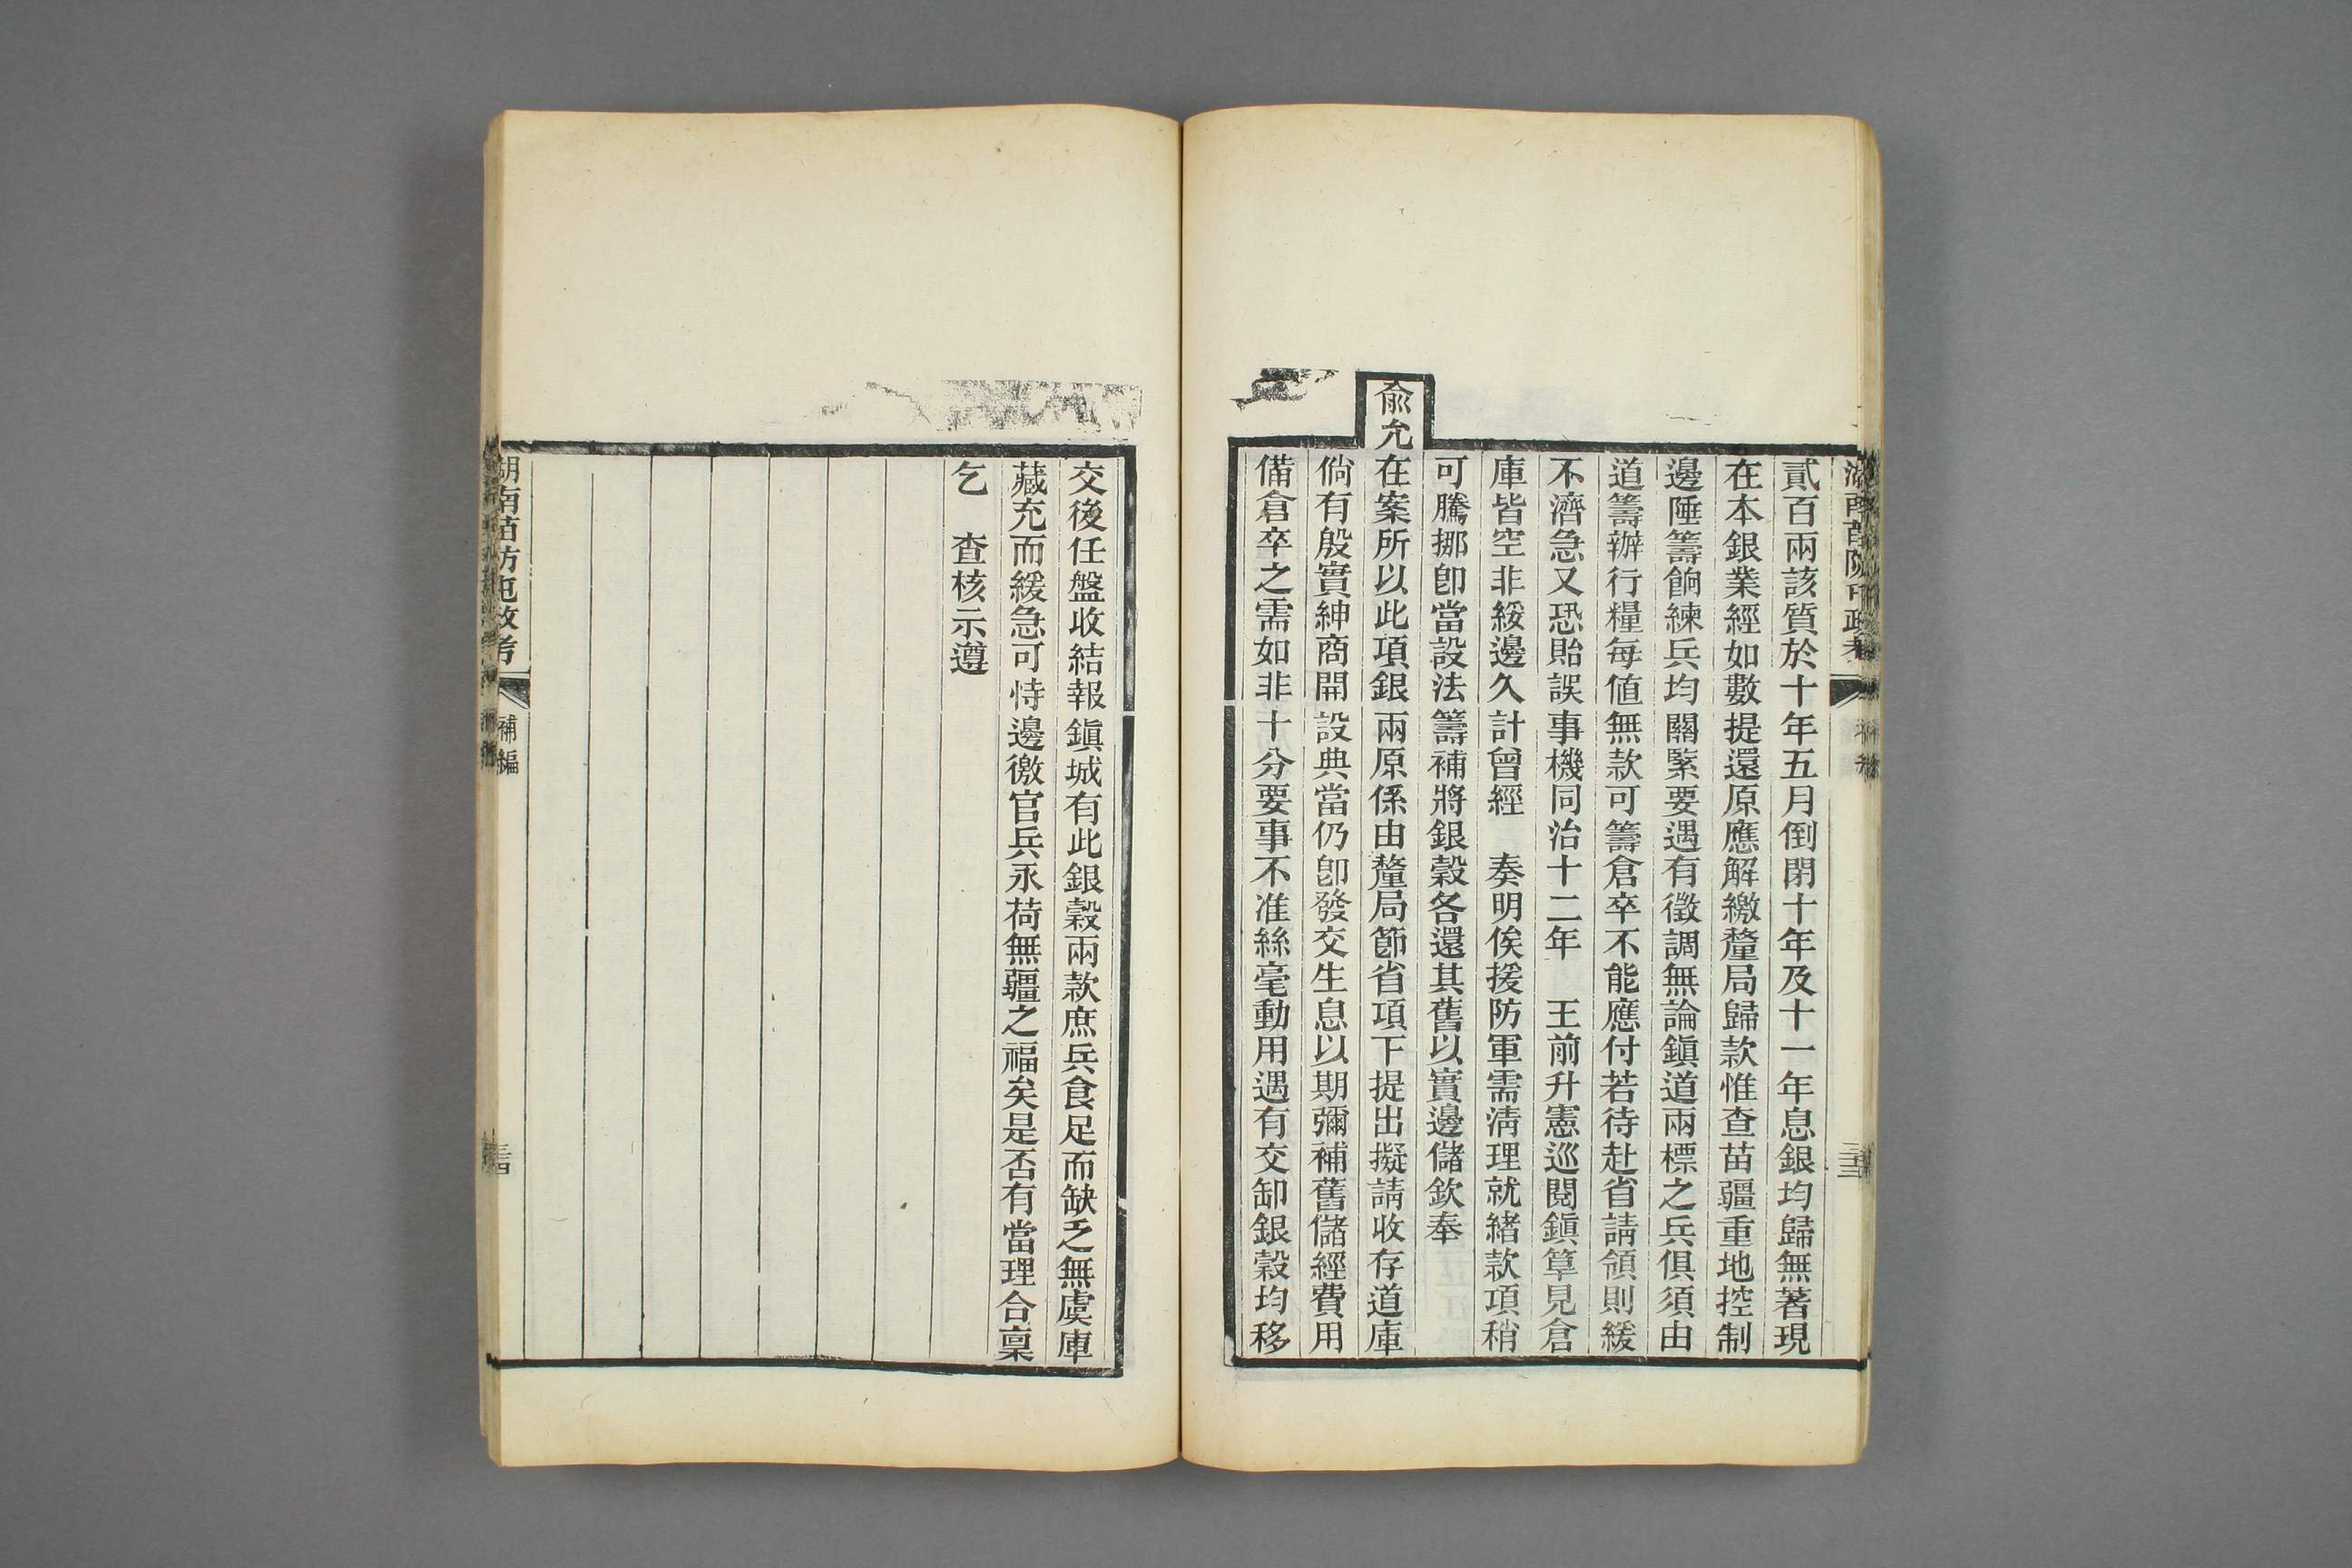 貳百兩該質於十年五月倒閉十年及十一年息銀均歸無著現
在本銀業經如數提還原應解繳釐局歸款惟查苗疆重地控制
邊陲籌餉練兵均關緊要遇有徵調無論鎭道兩標之兵俱須由
道籌辦行糧每值無款可籌倉卒不能應付若待赴省請領則緩
不濟急又恐貽誤事機同治十二年　王前升憲巡閱鎭筸見倉
庫皆空非綏邊久計曾經　奏明俟援防軍需淸理就緖款項稍
可騰挪卽當設法籌補將銀穀各還其舊以實邊儲欽奉
俞允在案所以此項銀兩原係由釐局節省項下提出擬請收存道庫
倘有殷實紳商開設典當仍卽發交生息以期彌補舊儲經費用
備倉卒之需如非十分要事不准絲毫動用遇有交卸銀穀均移
交後任盤收結報鎭城有此銀穀兩款庶兵食足而缺乏無虞庫
藏充而緩急可恃邊徼官兵永荷無疆之福矣是否有當理合稟
乞　查核示遵
湖南苗防屯政考
補編
三四